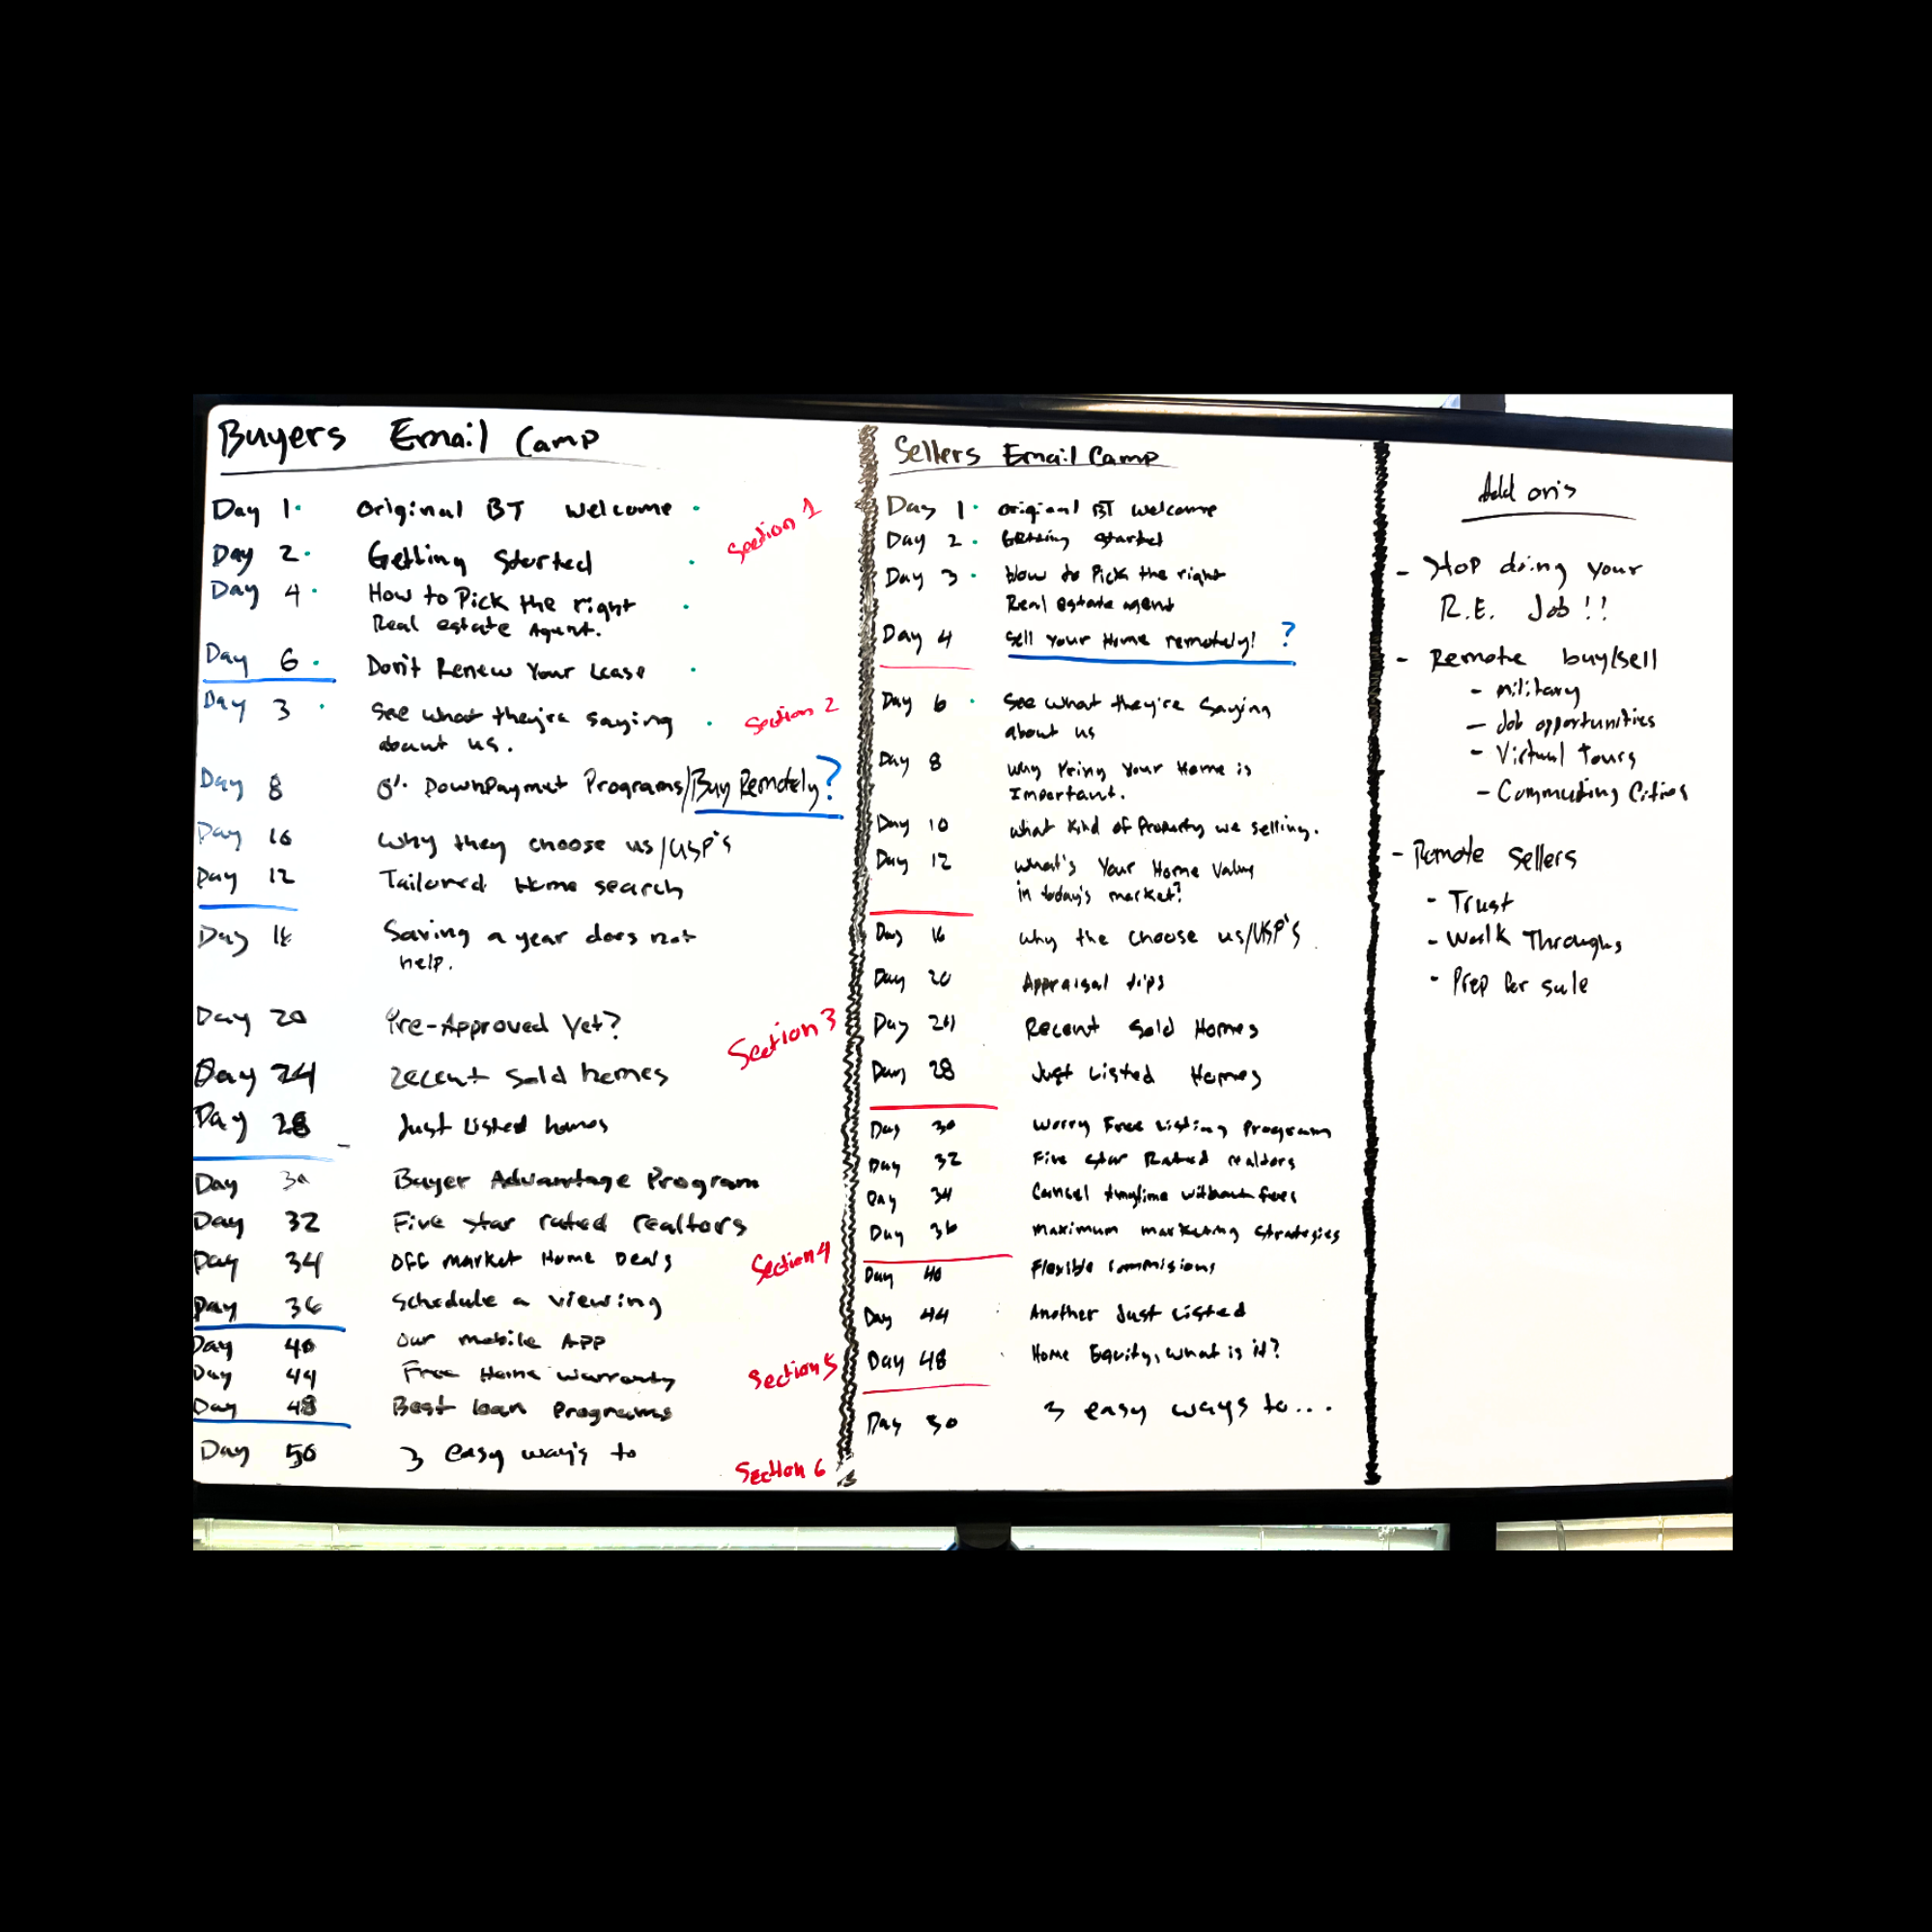 Buyers Email Camp
Day 1. Original BT Welcome .
Section 1
Day 2. Getting Started .
Day 4. How to Pick the right .
Real estate Agent.
Day 6. Don't Renew Your Lease .
Day 3 . See what they're saying .
about us.
Section 2
Day 8 0% DownPaymnt Programs/Buy Remotely?
Day 10 Why they choose us/USP's
Day 12 Tailored Home search
Day 16 Saving a year does not
help.
Day 20 Pre-Approved Yet?
Section 3
Day 24 Recent Sold homes
Day 28 Just Listed homes
Day 30 Buyer Advantage Program
Day 32 Five star rated realtors
Day 34 Off market Home Deals
Section 4
Day 36 Schedule a viewing
Day 40 Our mobile APP
Day 44 Free Home warranty
Section 5
Day 48 Best loan Programs
Day 50 3 easy way's to
Section 6
Sellers Email Camp
Day 1. Original BT Welcome
Day 2. Getting Started
Day 3. How to Pick the right
Real estate agent
Day 4 Sell Your Home remotely! ?
Day 6 . See what they're Saying
about us
Day 8 Why Pring Your Home is
Important.
Day 10 What kind of Property we selling.
Day 12 What's Your Home Value
in today's market?
Day 16 Why the choose us/USP's
Day 20 Appraisal tips
Day 24 Recent Sold Homes
Day 28 Just Listed Homes
Day 30 Worry Free Listing Program
Day 32 Five star Rated realtors
Day 34 Cancel anytime without fees
Day 36 Maximum marketing Strategies
Day 40 Flexible commisions
Day 44 Another Just Listed
Day 48 Home Equity, what is it?
Day 50 3 easy ways to...
Add ons
- Stop doing your
R.E. Job!!
- Remote buy/sell
- Military
- Job opportunities
- Virtual Tours
- Commuting Cities
- Remote Sellers
- Trust
- Walk Throughs
- Prep for sale